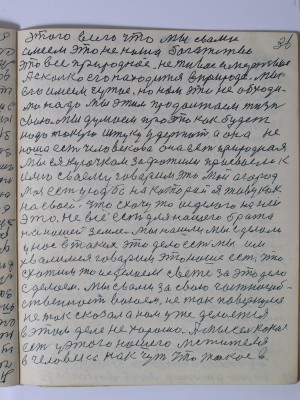 этого всего что мы с вами
имеем это не наши богатства
это все природное, не
а сколько его находится в природе. Мы
его имеем чутье, но нам это не обходи-
мо надо мы этим продолжаем жизнь
свою мы думаем про это как будто
надо такую штуку удержат а она не
наша ест человекова она ест природная
Мы с кусочком за
имю своему говорим это мой огород
моя ест усадба на которой я живу как
на своей. Что скочу то и сделаю на ней
это. Не всё ест для нашего брата
на нашей земле. Мы нашли мы сделали
у нас в таких это дело ест мы им
хвалимся говорим это наше ест, что
скотим то и в белом свете за это дело
сделаем. Мы с вами за свою частную соб-
ственность воюем, не так повернули
не так сказал а нам уже делается
в этим деле не хорошо. А мысел какая
ест у этого нашего жителя
в человека как чут что такое в
36